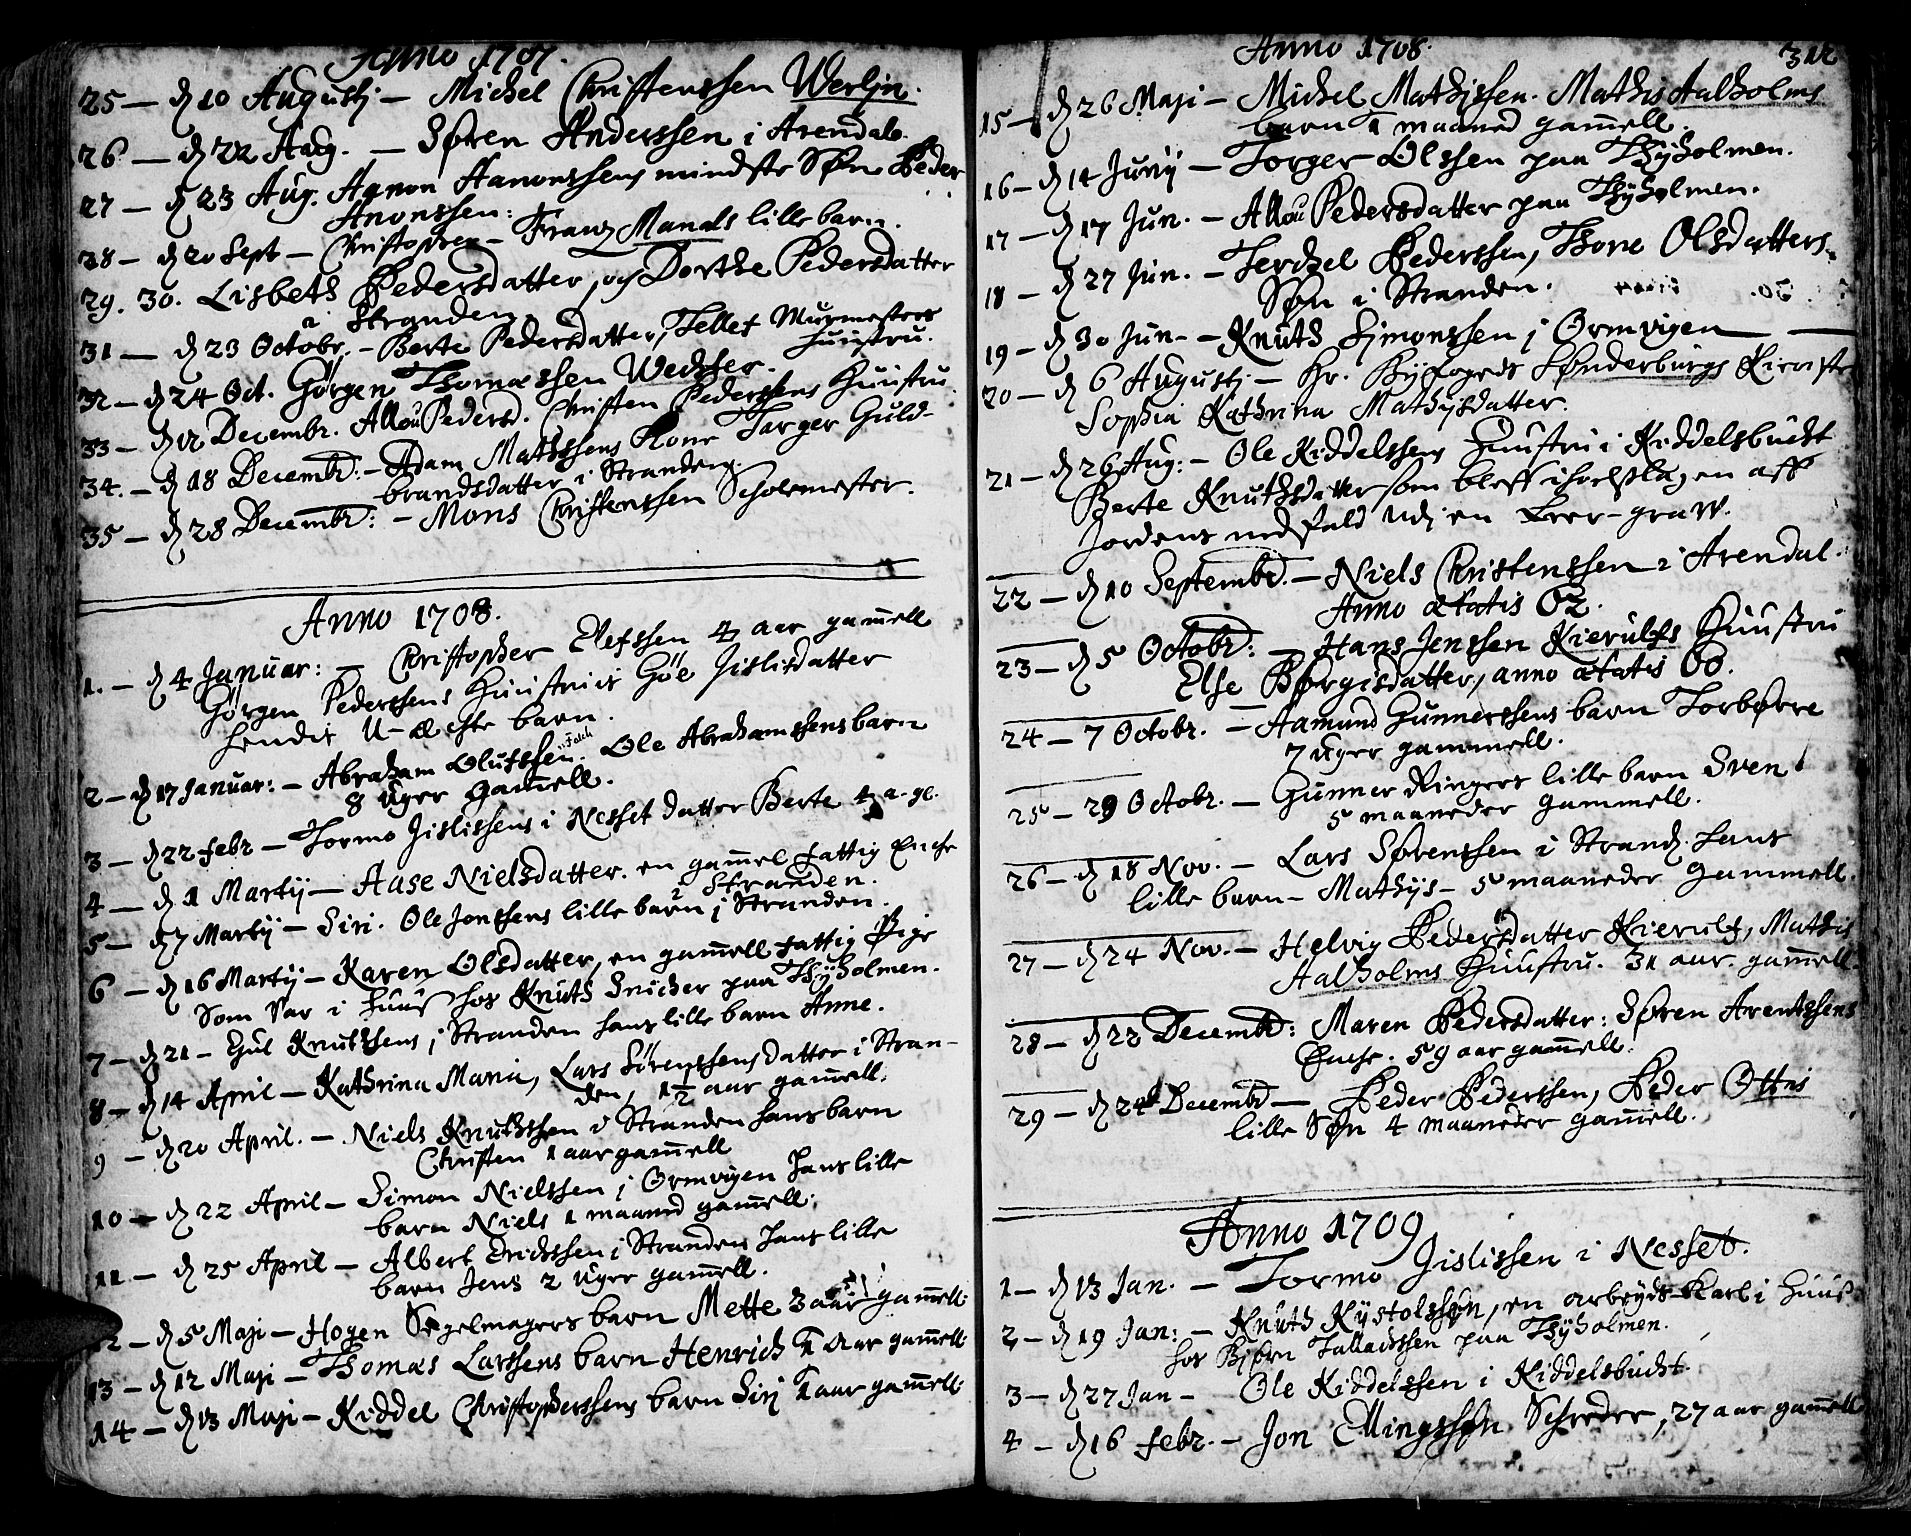 Anno 1707.
25 – d 10 Augustj – Michel Christenssen Werlin.
26 – d 22 Aug. – Søren Anderssen i Arendals.
27 – d 23 Aug. Aanon Aanonssens mindste Søn Peder
Anonssen:
28 – d 20 Sept – Christopher – Franz Mandls lille barn.
29. 30. Lisbeth Pedersdatter, og Dorthe Pedersdatter
i Stranden
31 – d 23 Octobr. – Berte Pedersdatter, Tellef Murmesters
huustru.
32 – d 24 Oct. Görgen Thomassen Wechter.
33 – d 12 Decembr. Allou Pedersd. Christen Pederssens Huustru
34. – d 18 Decembr: – Adam Mathssens Kone Targer Guld-
brandsdatter i Stranden.
35 – d 28 Decembr: – Mons Christenssen Scholemester.
Anno 1708.
1. – d 4 Januar: – Christopher Elefssen 4 aar gamell
Görgen Pederssens Huustrus Göe Jislisdatter
hendis U-ächte barn.
2 – d 17 Januar: – Abraham Olufssen Falch. Ole Abrahamssens barn
8 Uger gamell.
3 – d 22 febr – Tormo Jislissens i Nesset datter Berte 4 a. gl.
4 – d 1 Martij – Aase Nielsdatter. en gammel fattig Enche
i Stranden.
5 – d 7 Martij – Siri. Ole Jonssens lille barn j Stranden.
6 – d 16 Martij – Karen Olsdatter, en gamell fattig Pige
Som var i Huus hos Knuth Snicher paa Thyholmen.
7 – d 21 – Gul Knuthssens j Stranden hans lille barn Anne.
8 – d 14 April – Kathrina Maria, Lars Sörenssens datter i Stran-
den, 1½ aar gamell.
9 – d 20 April. – Niels Knuthssen i Stranden hans barn
Christen 1 aar gamell
10 – d 22 April – Simon Nielssen j Ormvigen hans lille
barn Niels 1 maaned gamell.
11 – d 25 April – Albert Erichssen i Stranden hans lille
barn Jens 2 Uger gamell.
12 – d 5 Maji – Hogen Segelmagers barn Mette 3 aar gamell.
13 – d 12 Maji – Thomas Larssens barn Henrich 1 aar gamell
14 – d 13 Maji – Kiddel Christopherssens barn Sirj 1 aar gamell.
Anno 1708.
312
15 – d 26 Maji – Michel Mathissen. Mathis Aalholms
barn 1 maaned gamell.
16 – d 14 Junij – Torger Olssen paa Thyholmen.
17 – d 17 Jun. – Allou Pedersdatter paa Thyholmen.
18 – d 27 Jun. – Terchel Pederssen, Thone Olsdatters
Søn i Stranden.
19 – d 30 Jun. – Knuth Simonssen j Ormvigen
20 – d 6 Augustj – Hr. Byfogeds Sønderburgs Kieriste
Sophia Kathrina Mathysdatter.
21 – d 26 Aug: – Ole Kiddelssens Huustru i Kiddelsbucht
Berte Knuthsdatter som bleff ihielslagen aff
Jordens nedfald udj en Leer-graw.
22 – d 10 Septembr. – Niels Christenssen i Arendal.
Anno ætatis 62.
23 – d 5 Octobr: – Hans Jenssen Kierulfs Huustru
Else Børgisdatter, anno ætatis 60.
24 – 7 Octobr. – Aamund Gunnerssens barn Torbørre
7 Uger gammell.
25 – 29 Octobr. – Gunner Ringers lille barn Sven
5 maaneder gammell.
26 – d 18 Nov. – Lars Sørenssen i Strand. hans
lille barn – Mathys – 5 maaneder gammell.
27 – d 24 Nov. – Helvig Pedersdatter Kierulf, Mathis
Aalholms Huustru. 31 aar gamell.
28 – d 22 Decembr: Maren Pedersdatter: Søren Arentssens
Enche. 59 aar gamell.
29 – d 24 Decembr – Peder Pederssen, Peder Ottis
lille Søn 4 maaneder gamell.
Anno 1709
1 – d 13 Jan. – Tormo Jislissen i Nesset.
2 – d 19 Jan: – Knuth Kystolssøn, en arbeyds-Karl i Huus
hos Biørn Tallachssen paa Thyholmen.
3 – d 27 Jan – Ole Kiddelssen i Kiddelsbucht.
4 – d 16 febr. – Jon Ellingssøn Schreder, 27 aar gamell